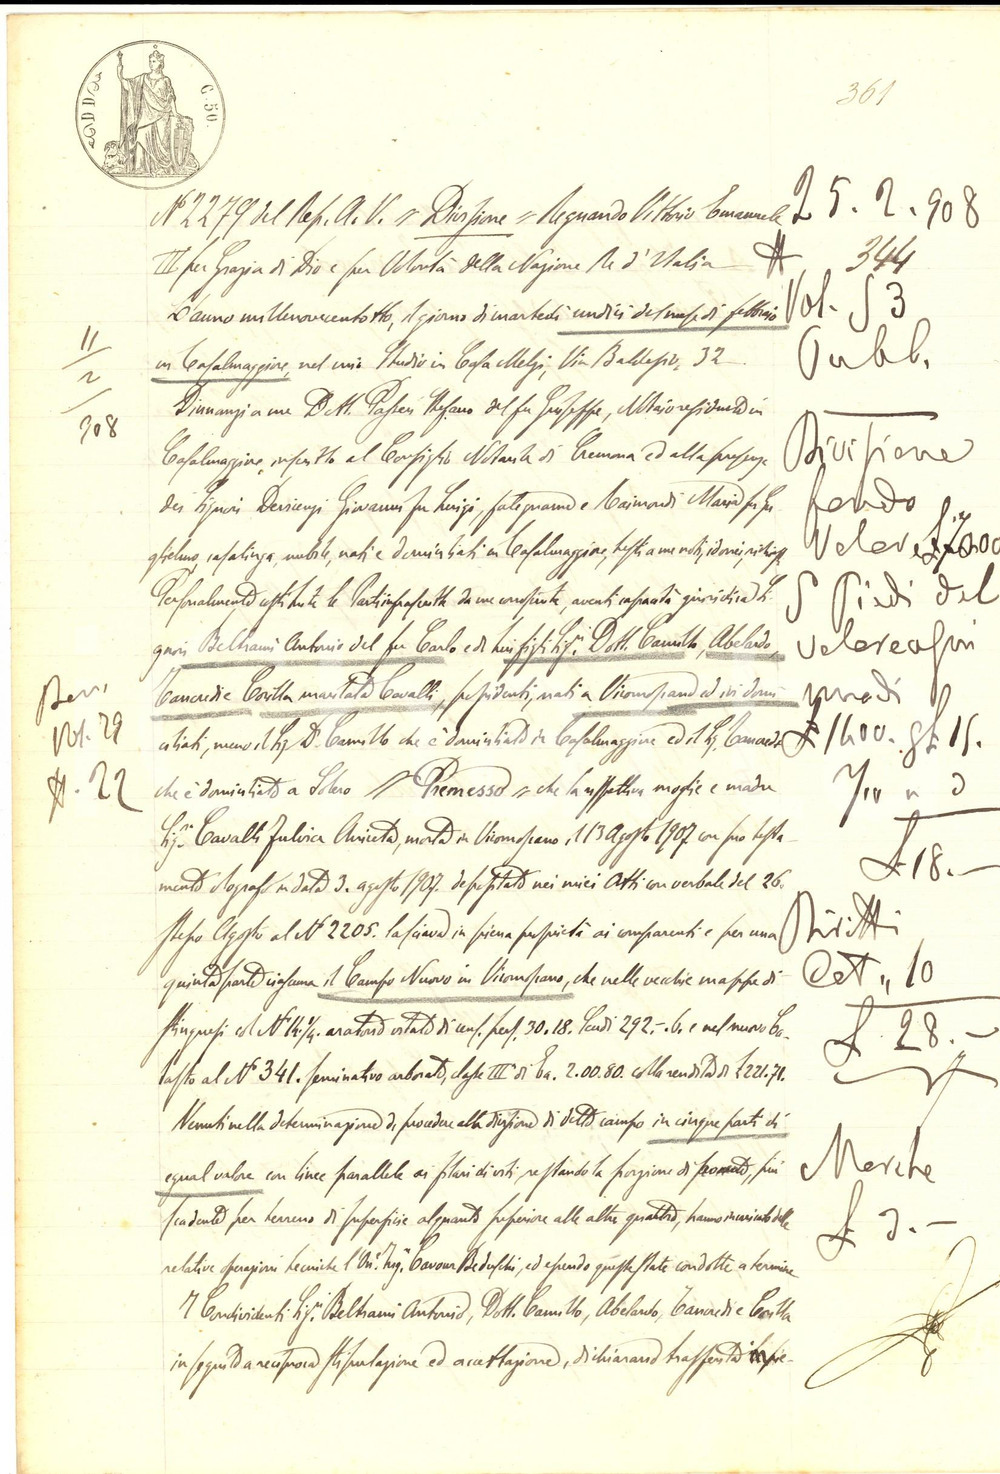 361
C. 50.
N° 2279 del Rep. A. V. // Divisione // Regnando Vittorio Emanuele
III per Grazia di Dio e per Volontà della Nazione Re d'Italia
L'anno millenovecentotto, il giorno di martedì undici del mese di febbraio
in Casalmaggiore, nel mio Studio in Casa Melzi, Via Baldesio, 32
Dinnanzi a me Dott. Stefano del fu Giuseppe, Notaio residente in
Casalmaggiore, inscritto al Consiglio Notarile di Cremona ed alla presenza
dei Signori Giovanni fu Luigi, falegname e Raimondi Maria fu Gu
glielmo, casalinga, nubile, nati e domiciliati in Casalmaggiore, testi a me noti, idonei, richiesti
Personalmente costituite le Parti infrascritte da me conosciute, aventi capacità giuridica Si
gnori Beltrami Antonio del fu Carlo e di lui figli Sig.i Dott. Camillo, Abelardo,
Tancredi e Corilla maritata Cavalli, possidenti, nati a Vicomoscano ed ivi domi
ciliati, meno il Sig. Dr. Camillo che è domiciliato in Casalmaggiore ed il Sig. Tancredi
che è domiciliato a // Premesso // che la rispettiva moglie e madre
Sig.ra Cavalli Fulvia Aniceta, morta in Vicomoscano il 13 Agosto 1907 con suo testa-
mento olografo in data 3. agosto 1907. depositato nei miei Atti con verbale del 26.
stesso Agosto al N° 2205. lasciava in piena proprietà ai comparenti e per una
quinta parte ciascuno il Campo Nuovo in Vicomoscano, che nelle vecchie mappe di
col N° 14.1/4. aratorio vitato di cens. pert. 30.18. Scudi 292.-.6. e nel nuovo Ca-
tasto al N° 341. seminativo arborato, classe III di Ea. 2.00.80. colla rendita di £ 221.71.
Venuti nella determinazione di procedere alla divisione di detto campo in cinque parti di
egual valore con linee parallele ai filari di viti, restando la porzione di più
scadente per terreno di superficie alquanto superiore alle altre quattro, hanno incaricato delle
relative operazioni tecniche l'On. Ing. Cavour Beduschi, ed essendo queste state condotte a termine
I Condividenti Sig.i Beltrami Antonio, Dott. Camillo, Abelardo, Tancredi e Corilla
in seguito a reciproca stipulazione ed accettazione, dichiarano trasferita
11/2/908
Vol. 29
#. 22
25. 2. 908
# 344
Vol. 53
Pubb.
Divisione
fondo
Valore
£ 1400.
£ 18.-
Diritti
Cat „ 10
£ 28.-
Marche
£ 3.-